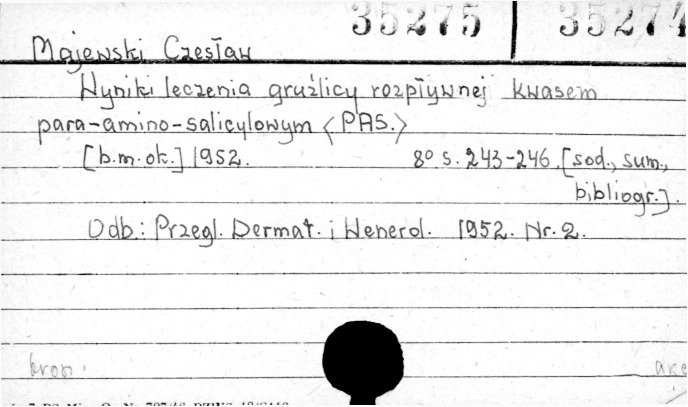 35275 35274
Majewski Czesław
Wyniki leczenia gruźlicy rozpływnej kwasem
para-amino-salicylowym <PAS.>
[b.m.ok.] 1952. 8° s. 243-246, [sod., sum.,
bibliogr.].
Odb.: Przegl. Dermat. i Wenerol. 1952. Nr. 2.
brosz.